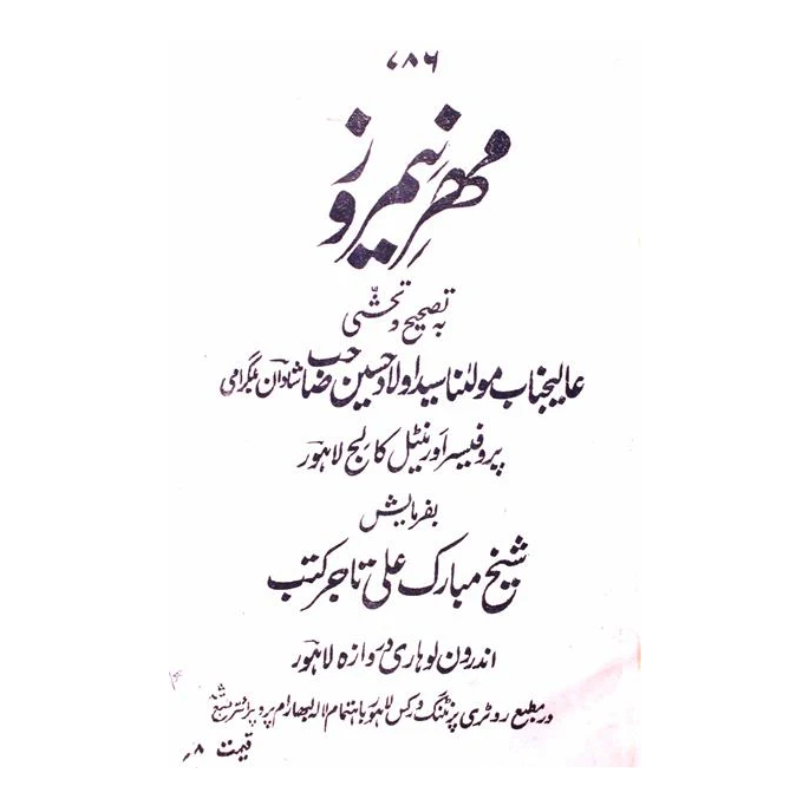 ۷۸۶
مہرِ نیمروز
بہ تصحیح و تحشّی
عالیجناب مولٰنا سید اولاد حسین صاحب شادآن بلگرامی
پروفیسر اورینٹیل کالج لاہور
بفرمایش
شیخ مبارک علی تاجر کتب
اندرون لوہاری دروازہ لاہور
در مطبع روٹری پرنٹنگ ورکس لاہور باہتمام لالہ پروپرائٹر طبع شد
قیمت ۸؍